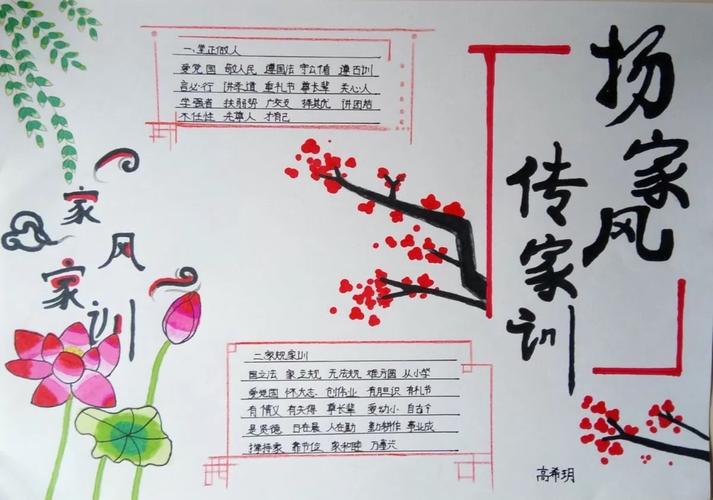 扬家风
传家训
家风
家训
一、堂正做人
爱党国 敬人民 遵国法 守公德 遵古训
言必行 讲孝道 重礼节 尊长辈 关心人
学强者 扶弱势 广交友 择其优 讲团结
不任性 夫尊人 才有己
二、家规家训
国立法 家立规 无法规 难方圆 从小学
爱党国 怀大志 创伟业 有胆识 有礼节
有情义 有失得 尊长辈 爱幼小 自古个
是美德 日在晨 人在勤 勤耕作 事业成
靠节位 家和睦 万事兴
高希玥